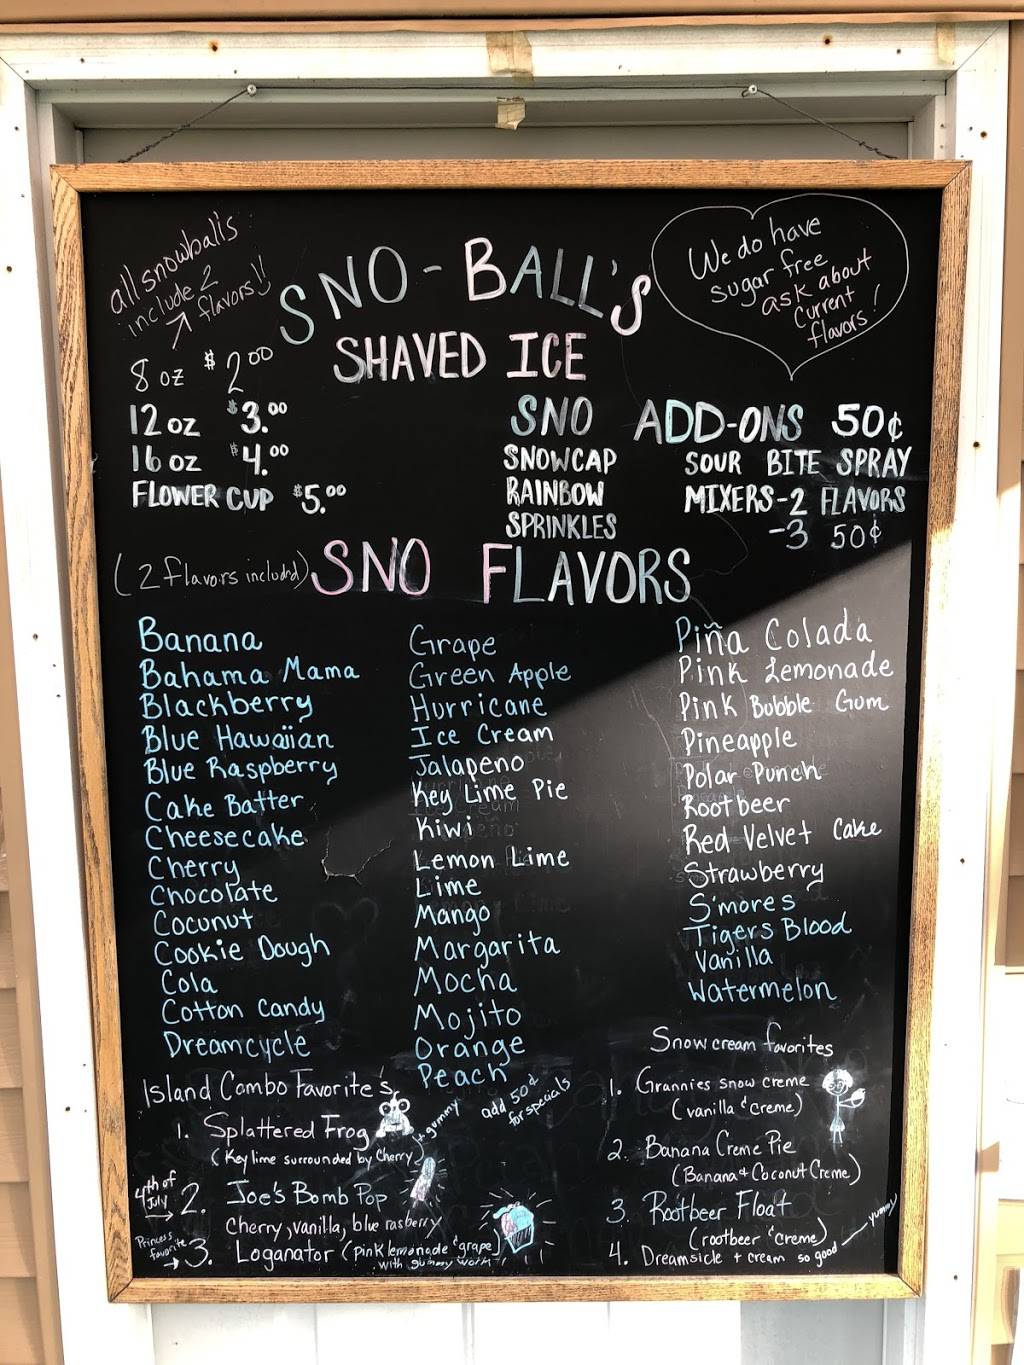 all snowball's
include 2
flavors!!
SNO-BALL'S
SHAVED ICE
We do have
sugar free
ask about
current
flavors!
8 oz $2.00
12 oz $3.00
16 oz $4.00
FLOWER CUP $5.00
SNO ADD-ONS 50¢
SNOWCAP
RAINBOW
SPRINKLES
SOUR BITE SPRAY
MIXERS-2 FLAVORS
-3 50¢
(2 flavors included)
SNO FLAVORS
Banana
Bahama Mama
Blackberry
Blue Hawaiian
Blue Raspberry
Cake Batter
Cheesecake
Cherry
Chocolate
Coconut
Cookie Dough
Cola
Cotton Candy
Dreamcycle
Grape
Green Apple
Hurricane
Ice Cream
Jalapeno
Key Lime Pie
Kiwi
Lemon Lime
Lime
Mango
Margarita
Mocha
Mojito
Orange
Peach
Piña Colada
Pink Lemonade
Pink Bubble Gum
Pineapple
Polar Punch
Rootbeer
Red Velvet Cake
Strawberry
S'mores
Tigers Blood
Vanilla
Watermelon
Island Combo Favorite's
add 50¢
for specials
1. Splattered Frog
(Key lime surrounded by Cherry)
+ gummy
4th of
July
2. Joe's Bomb Pop
Cherry, vanilla, blue rasberry
Princess
favorite
3. Loganator (pink lemonade & grape)
with gummy worm
Snow cream favorites
1. Grannies snow creme
(vanilla & creme)
2. Banana Creme Pie
(Banana + Coconut Creme)
3. Rootbeer Float
(rootbeer & creme)
4. Dreamsicle + cream so good
yummy